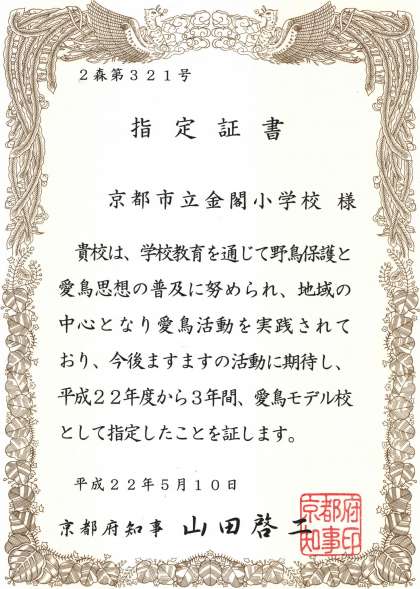 ２森第３２１号
指定証書
京都市立金閣小学校 様
貴校は、学校教育を通じて野鳥保護と
愛鳥思想の普及に努められ、地域の
中心となり愛鳥活動を実践されて
おり、今後ますますの活動に期待し、
平成２２年度から３年間、愛鳥モデル校
として指定したことを証します。
平成２２年５月１０日
京都府知事 山田啓二
京都府
知事印